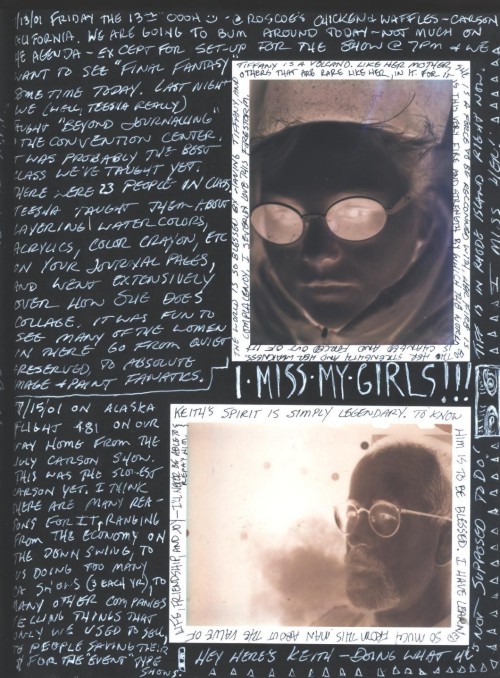 7/13/01 FRIDAY THE 13TH OOOH @ ROSCOE'S CHICKEN & WAFFLES - CARSON
CALIFORNIA. WE ARE GOING TO BUM AROUND TODAY - NOT MUCH ON
THE AGENDA - EXCEPT FOR SET-UP FOR THE SHOW @ 7PM & WE
WANT TO SEE "FINAL FANTASY"
SOMETIME TODAY. LAST NIGHT
WE (WELL, TEESHA REALLY)
TAUGHT "BEYOND JOURNALLING"
@ THE CONVENTION CENTER.
IT WAS PROBABLY THE BEST
CLASS WE'VE TAUGHT YET.
THERE WERE 23 PEOPLE IN CLASS,
TEESHA TAUGHT THEM ABOUT
LAYERING WATER COLORS,
ACRYLICS, COLOR CRAYON, ETC
ON YOUR JOURNAL PAGES,
AND WENT EXTENSIVELY
OVER HOW SHE DOES
COLLAGE. IT WAS FUN TO
SEE MANY OF THE WOMEN
IN THERE GO FROM QUIET
RESERVED, TO ABSOLUTE
IMAGE & PAINT FANATICS.
TIFFANY IS A VOLLAND. LIKE HER MOTHER,
OTHERS THAT ARE RARE LIKE HER, IN IT. FOR IT
IS THIS VERY FIRE AND STRENGTH BY WHICH THE WORLD
IS CHANGED AND FORCED OUT OF IT'S
COMPLACENCY. I SEVERELY LOVE THIS FIRESTORM.
SHE IS A FORCE TO BE RECKONED WITH. HER FIRE IS
HER STRENGTH AND HER WEAKNESS.
THE WORLD IS SO BLESSED BY HAVING TIFFANY, AND
TIFF IS IN RHODE ISLAND RIGHT NOW
I·MISS·MY·GIRLS!!!
7/15/01 ON ALASKA
FLIGHT 481 ON OUR
WAY HOME FROM THE
JULY CARSON SHOW.
THIS WAS THE SLOWEST
CARSON YET. I THINK
THERE ARE MANY REA-
SONS FOR IT, RANGING
FROM THE ECONOMY ON
THE DOWN SWING, TO
US DOING TOO MANY
CA SHOWS (3 EACH YR), TO
MANY OTHER COMPANIES
SELLING THINGS THAT
ONLY WE USED TO SELL,
TO PEOPLE SAVING THEIR
$ FOR THE "EVENT" TYPE
SHOWS.
KEITH'S SPIRIT IS SIMPLY LEGENDARY. TO KNOW
HIM IS TO BE BLESSED. I HAVE LEARNED
SO MUCH FROM THIS MAN ABOUT THE VALUE OF
LIFE, FRIENDSHIP, AND JOY - I'LL NEVER BE ABLE TO
REPAY HIM.
HEY HERE'S KEITH - DOING WHAT HE'S
NOT SUPPOSED TO DO.